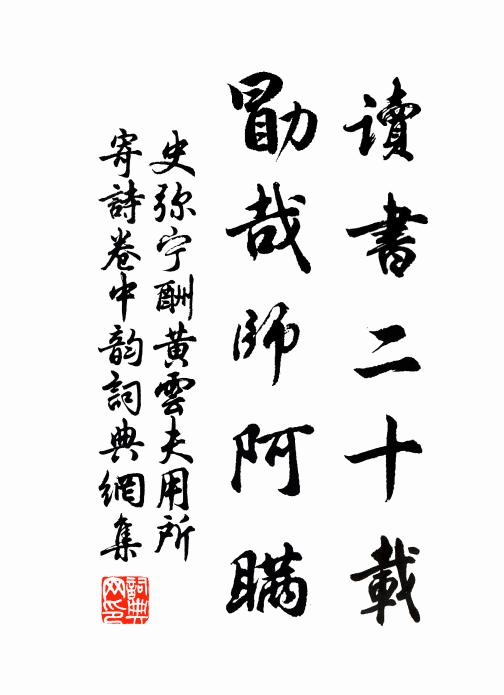 讀書二十載
勖哉師阿瞞
史弥宁酬黄雲夫用所
寄詩卷中韵詞典網集
詞典網印